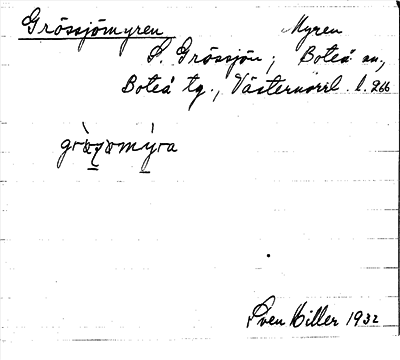 Grössjömyren Myren
S. Grössjön; Boteå sn,
Boteå tg., Västernorrl. l. 266
Sven Hiller 1932